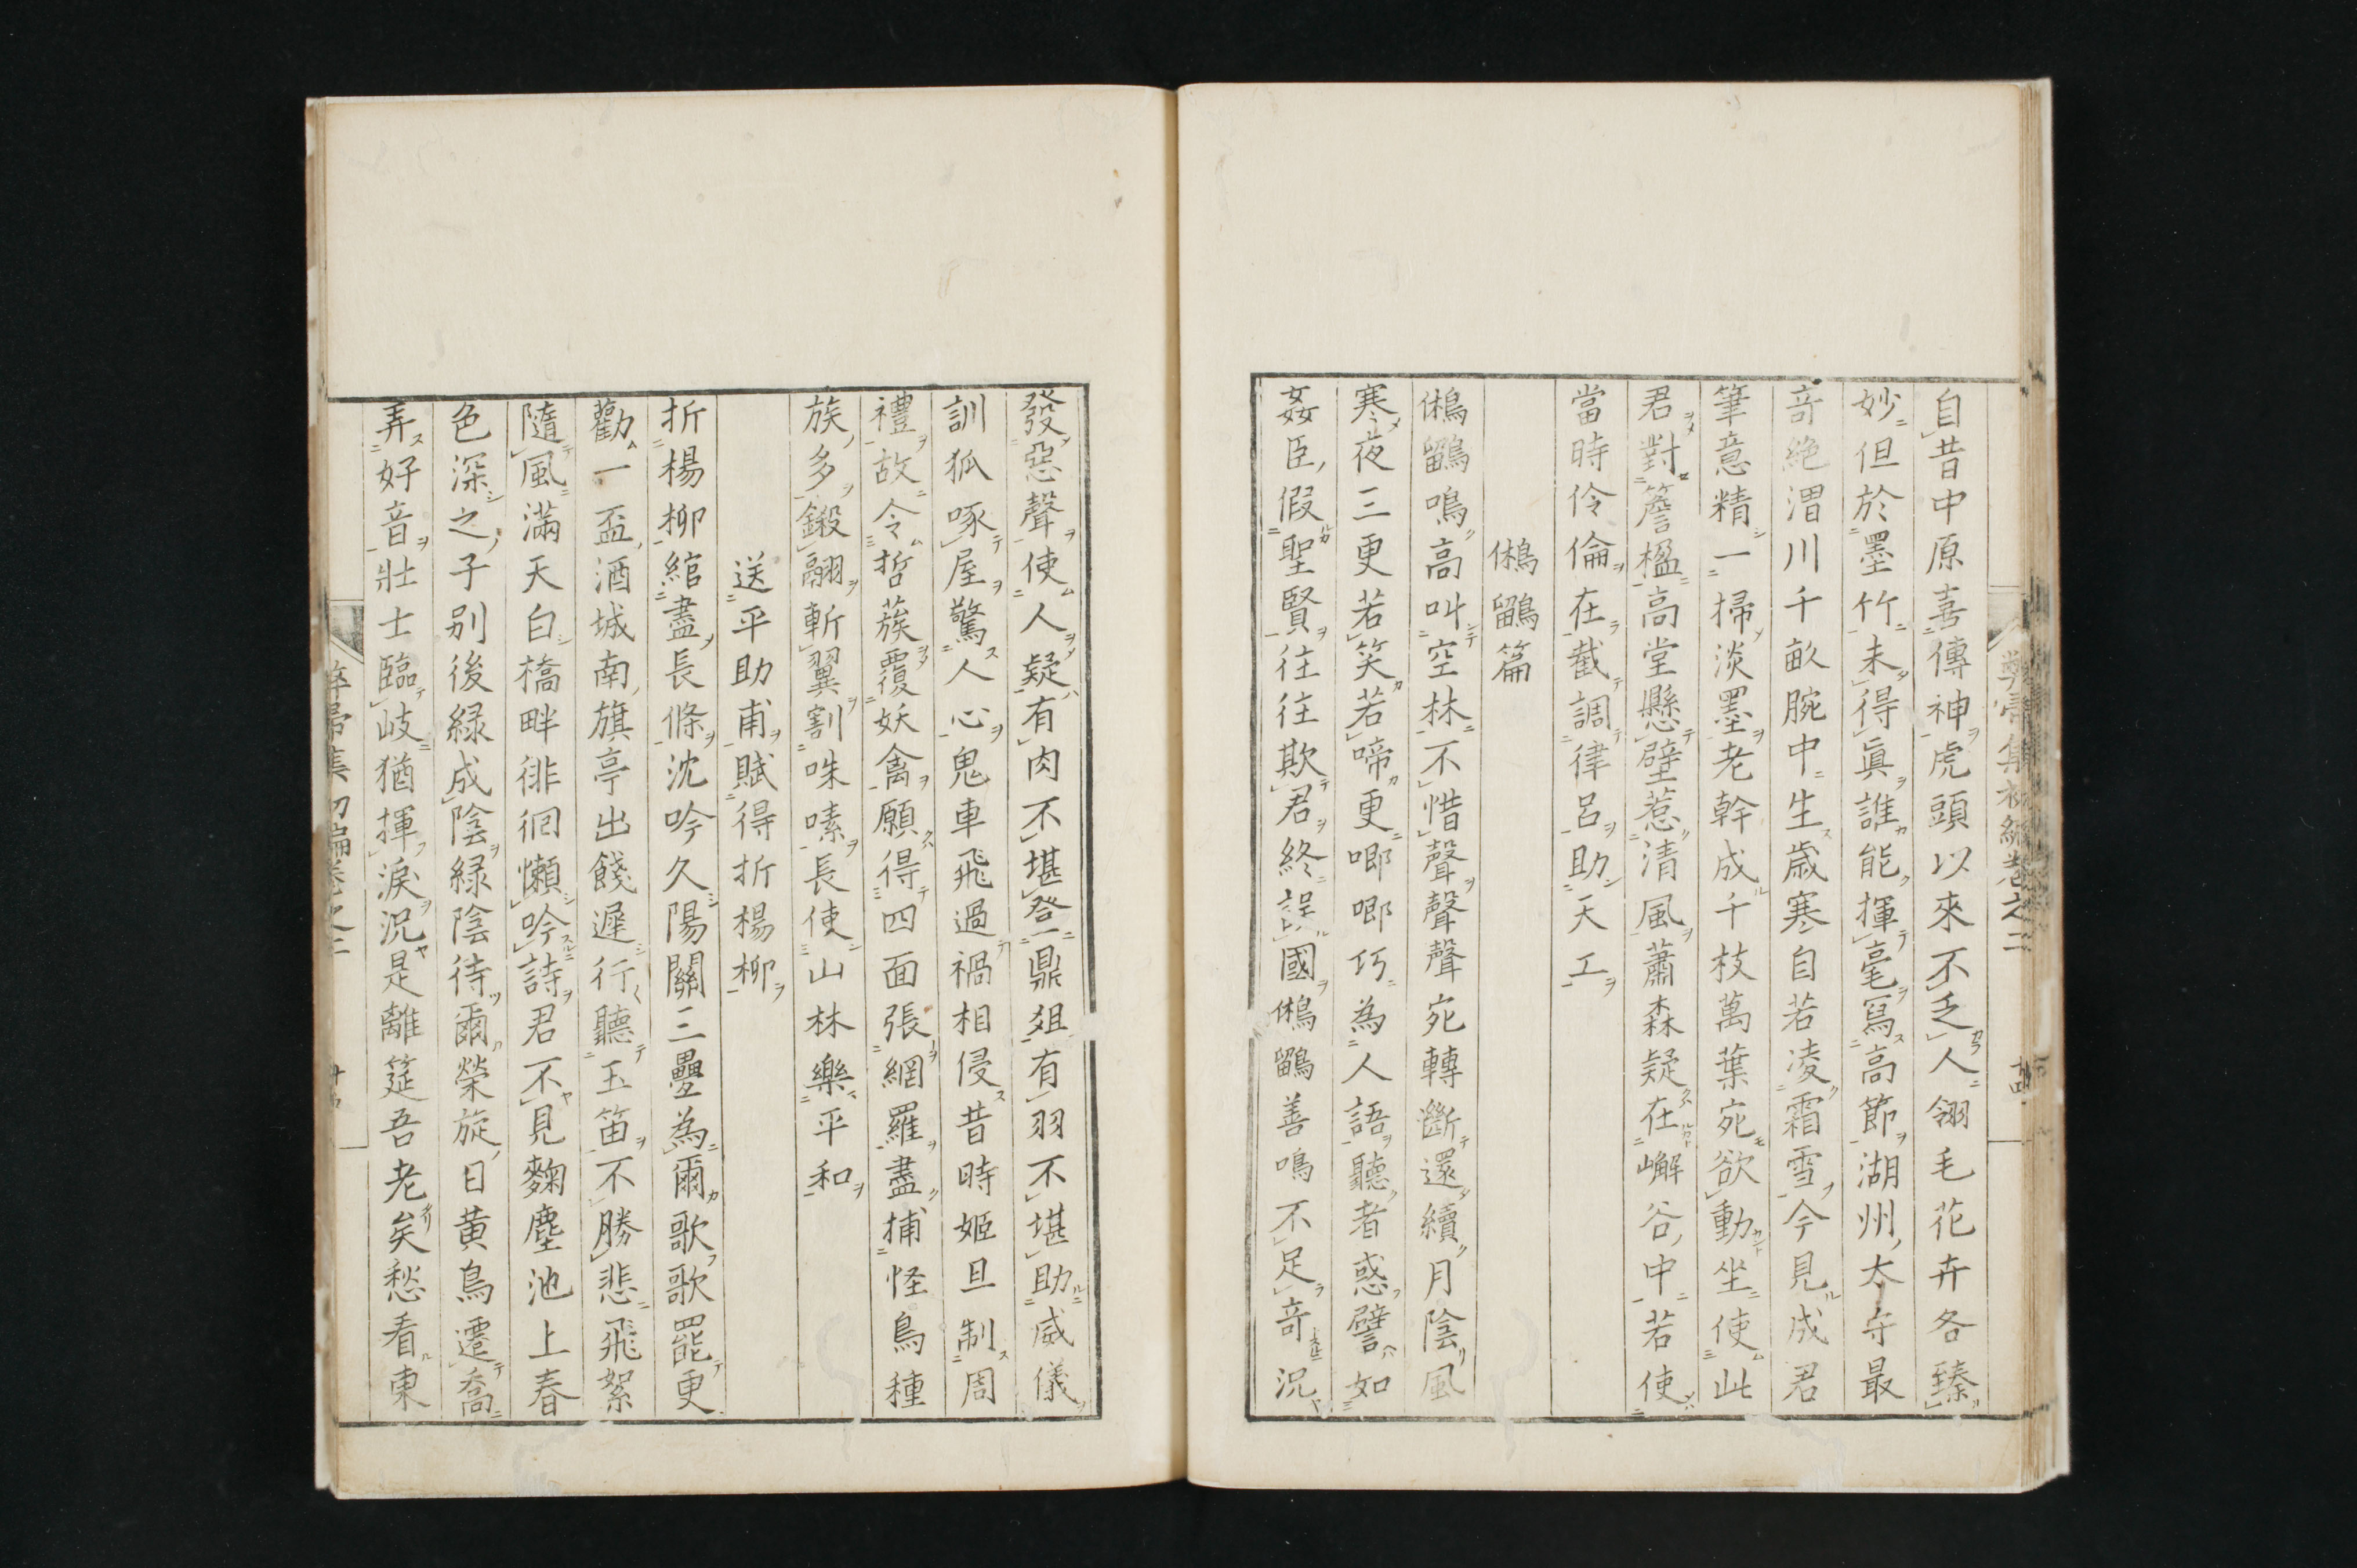 自昔中原喜傳神虎頭以來不乏人翎毛花卉各臻
妙但於墨竹未得眞誰能揮毫寫高節湖州太守最
奇絶渭川千畝腕中生歲寒自若凌霜雪今見成君
筆意精一掃淡墨老幹成千枝萬葉宛欲動坐使此
君對簷楹高堂懸壁惹清風蕭森疑在嶰谷中若使
當時伶倫在截調律呂助天工
鵂鶹篇
鵂鶹鳴高叫空林不惜聲聲宛轉斷還續月陰風
寒夜三更若笑若啼更啣啣巧為人語聽者惑譬如
姦臣假聖賢往往欺君終誤國鵂鶹善鳴不足奇況
發惡聲使人疑有肉不堪登鼎俎有羽不堪助威儀
訓狐啄屋驚人心鬼車飛過禍相侵昔時姬旦制周
禮故令哲蔟覆妖禽願得四面張網羅盡捕怪鳥種
族多鎩翮斬翼割咮嗉長使山林樂平和
送平助甫賦得折楊柳
折楊柳綰盡長條沈吟久陽關三疊為爾歌歌罷更
勸一盃酒城南旗亭出餞遲行聽玉笛不勝悲飛絮
隨風滿天白橋畔徘徊懶吟詩君不見麴塵池上春
色深之子別後緑成陰緑陰待爾榮旋日黄鳥遷喬
弄好音壯士臨岐猶揮淚況是離筵吾老矣愁看東